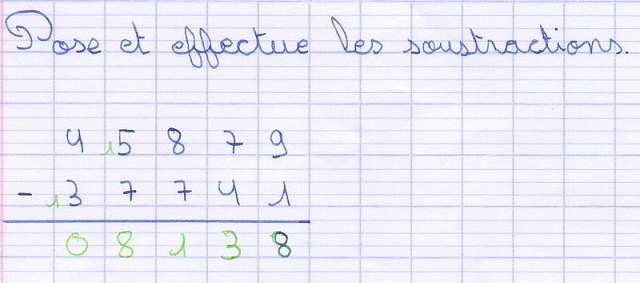 Pose et effectue les soustractions.
4 15 8 7 9
- 13 7 7 4 1
0 8 1 3 8